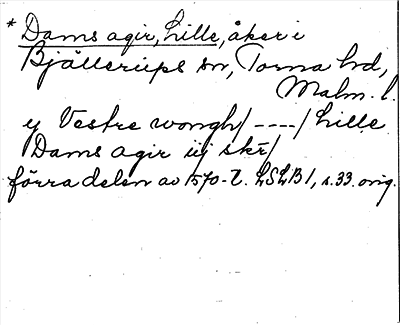 * Dams agir, Lille, åker i
Bjällerups sn, Torna hd,
Malm. l.
y Vestre wongh/ ----/ Lille
Dams agir iij skr/
förra delen av 1570-t. LSLB 1, s. 33. orig.